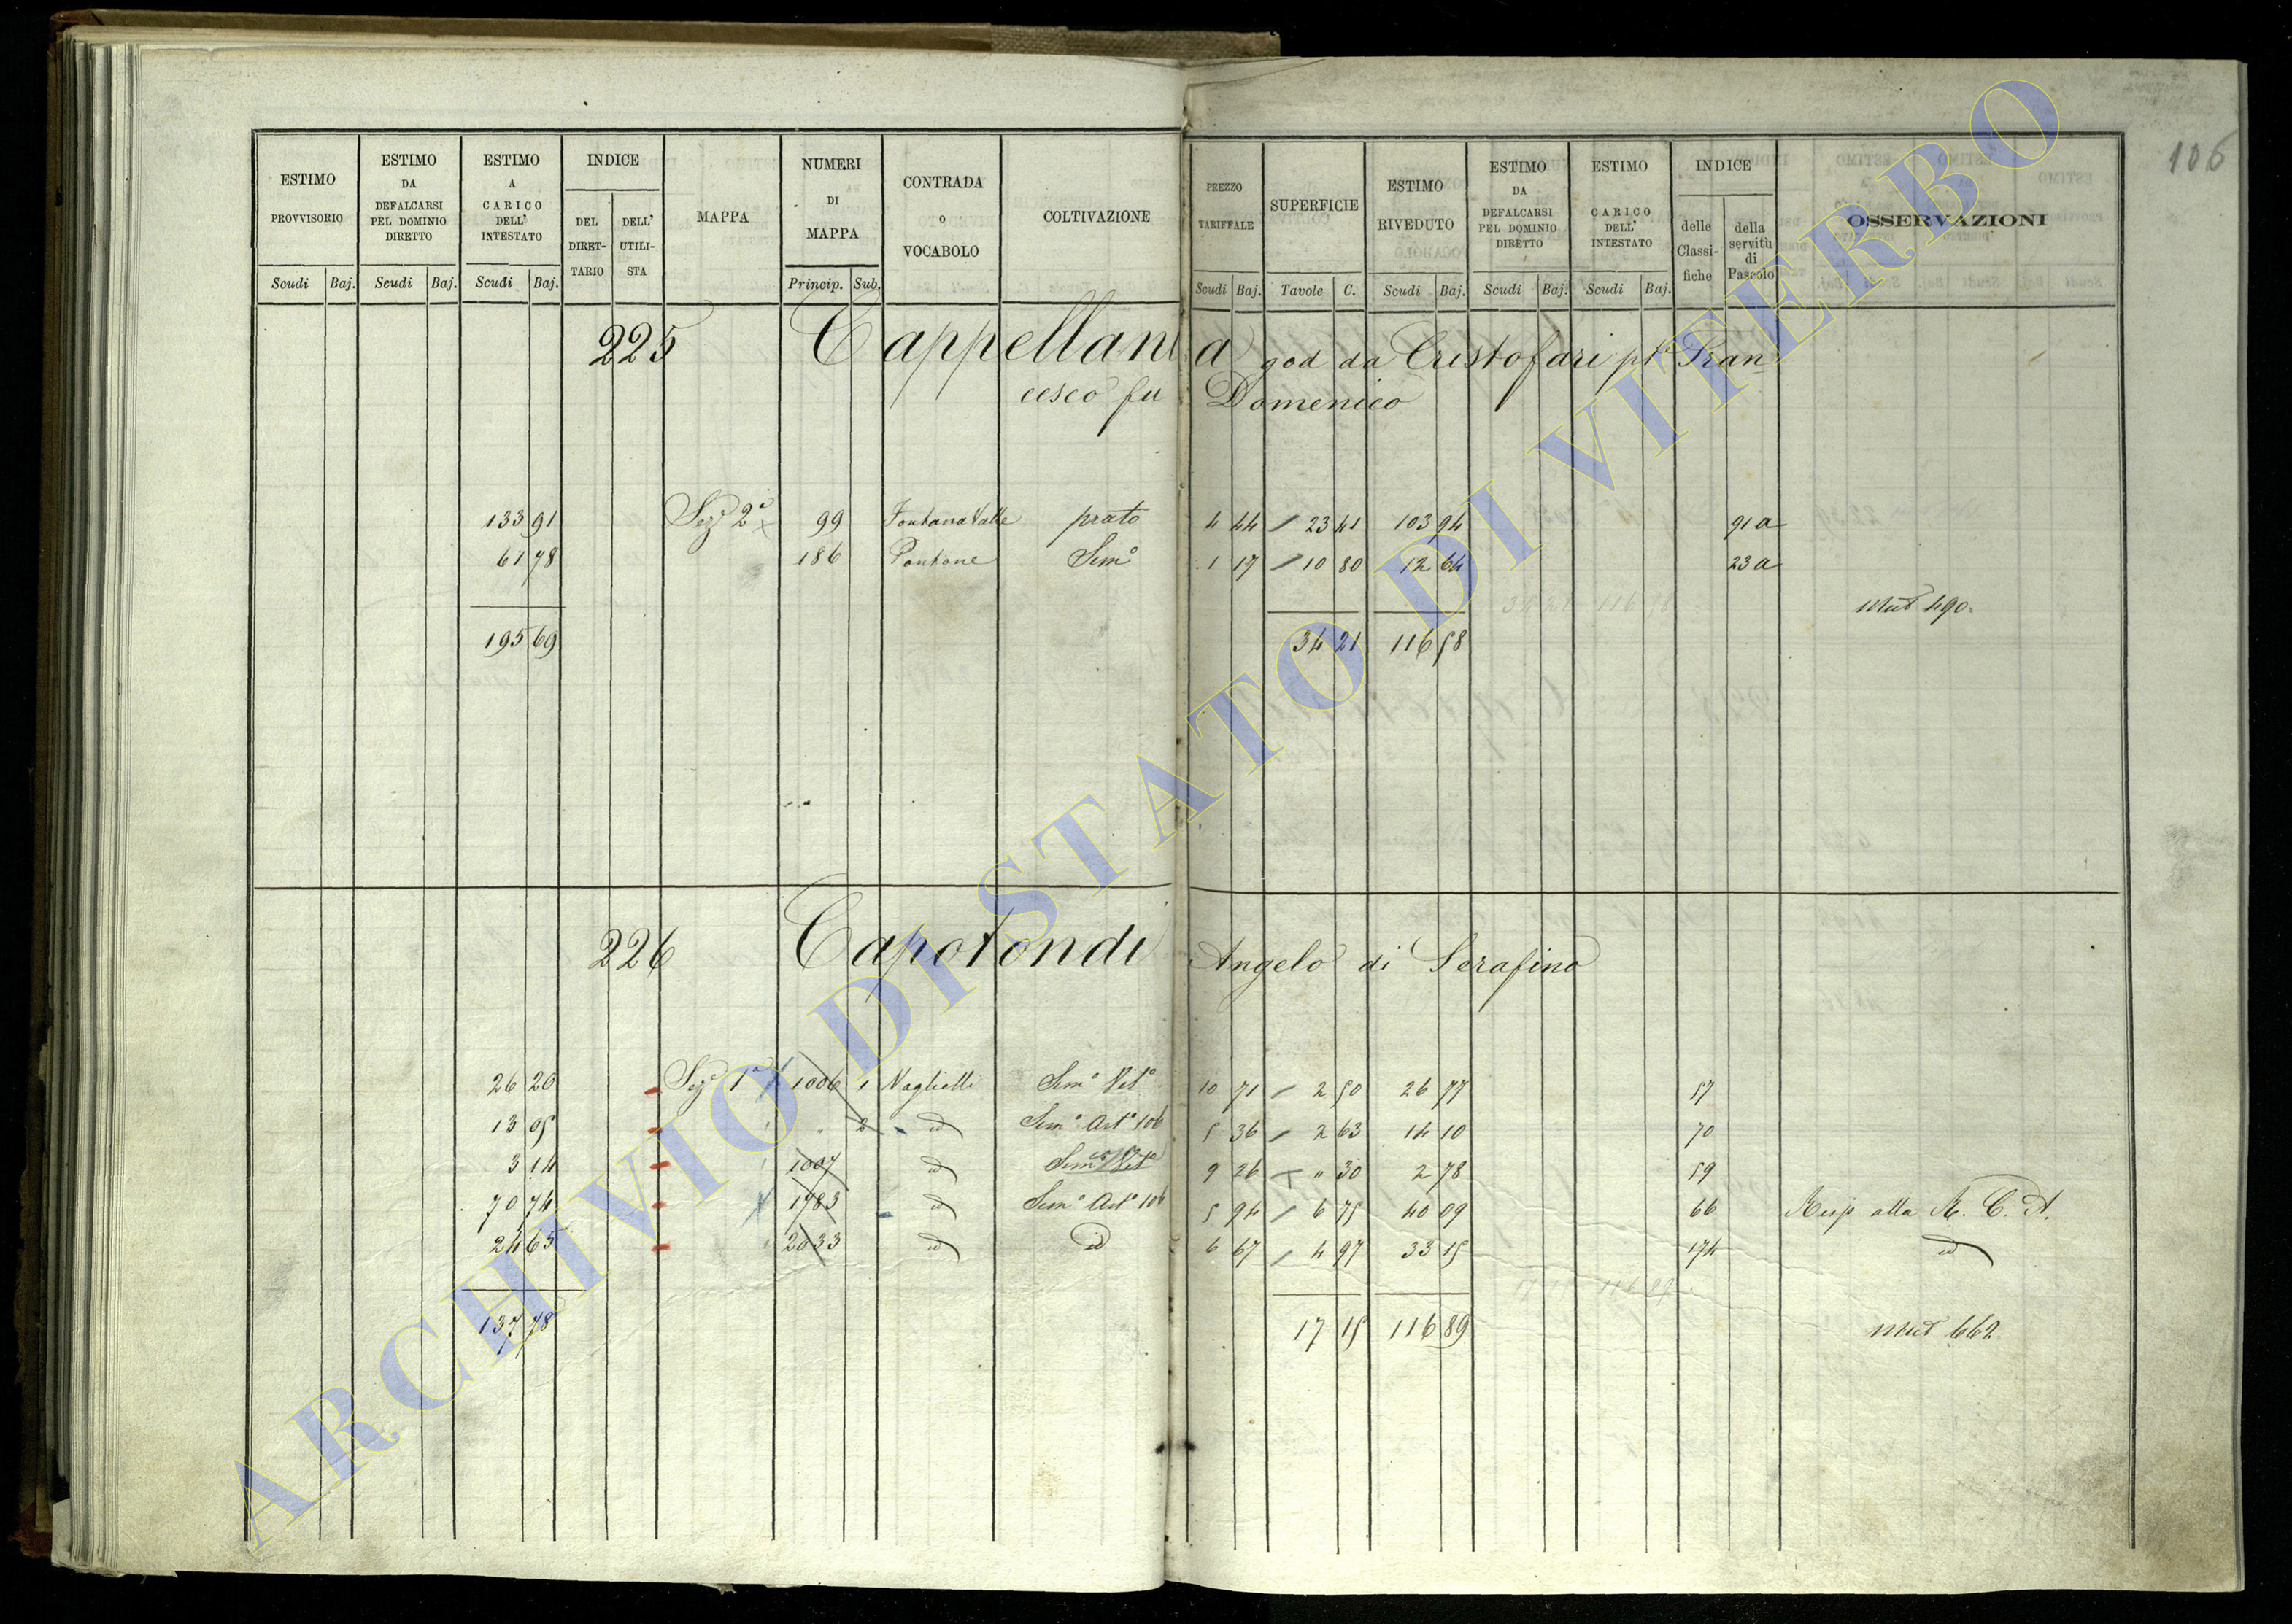 106
ESTIMO PROVVISORIO
ESTIMO DA DEFALCARSI PEL DOMINIO DIRETTO
ESTIMO A CARICO DELL' INTESTATO
INDICE
DEL DIRETTARIO
DELL' UTILISTA
MAPPA
NUMERI DI MAPPA
CONTRADA O VOCABOLO
COLTIVAZIONE
PREZZO TARIFFALE
SUPERFICIE
ESTIMO RIVEDUTO
ESTIMO DA DEFALCARSI PEL DOMINIO DIRETTO
ESTIMO CARICO DELL' INTESTATO
INDICE
delle Classifiche
della servitù di Pascolo
OSSERVAZIONI
Scudi Baj. Scudi Baj. Scudi Baj. Princip. Sub. Scudi Baj. Tavole C. Scudi Baj. Scudi Baj. Scudi Baj.
225 Cappellania god da Cristofari pte Fran
cesco fu Domenico
133 91 Seze 2a 99 Fontana Valle prato 4 44 / 23 41 103 94 91 a
61 78 186 Pontone Semo 1 17 / 10 80 12 64 23 a
34 21 116 58
Mut 490.
195 69 34 21 116 58
226 Capotondi Angelo di Serafino
26 20 Seze 1a 1006 1 Maglielli Semo Vito 10 71 / 2 50 26 77 57
13 05 " 2 id Semo Arto 106 5 36 / 2 63 14 10 70
3 14 1007 id Semo Vito 9 26 " 30 2 78 59
70 74 1783 id Semo Arto 106 5 94 / 6 75 40 09 66 Risp alla R. C. A.
24 65 2033 id id 6 67 / 4 97 33 15 174 id
17 15 116 89
137 78 17 15 116 89 Mut 662
ARCHIVIO DI STATO DI VITERBO